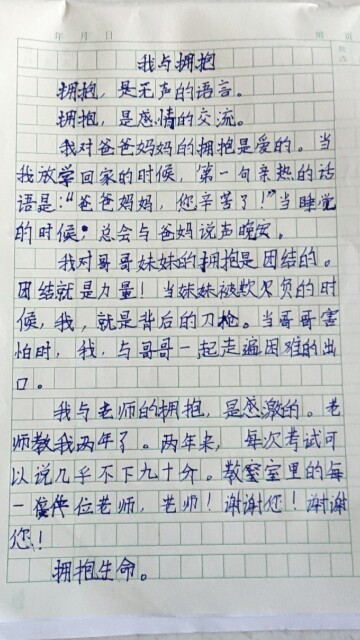 年 月 日
我与拥抱
拥抱，是无声的语言。
拥抱，是感情的交流。
我对爸爸妈妈的拥抱是爱的。当
我放学回家的时候，第一句亲热的话
语是："爸爸妈妈，您辛苦了！"当睡觉
的时候，总会与爸妈说声晚安。
我对哥哥妹妹的拥抱是团结的。
团结就是力量！当妹妹被欺欠负的时
候，我，就是背后的刀枪。当哥哥害
怕时，我，与哥哥一起走遍困难的出
口。
我与老师的拥抱，是感激的。老
师教我两年了。两年来，每次考试可
以说几乎不下九十分。教室里的每
一位老师，老师！谢谢您！谢谢
您！
拥抱生命。